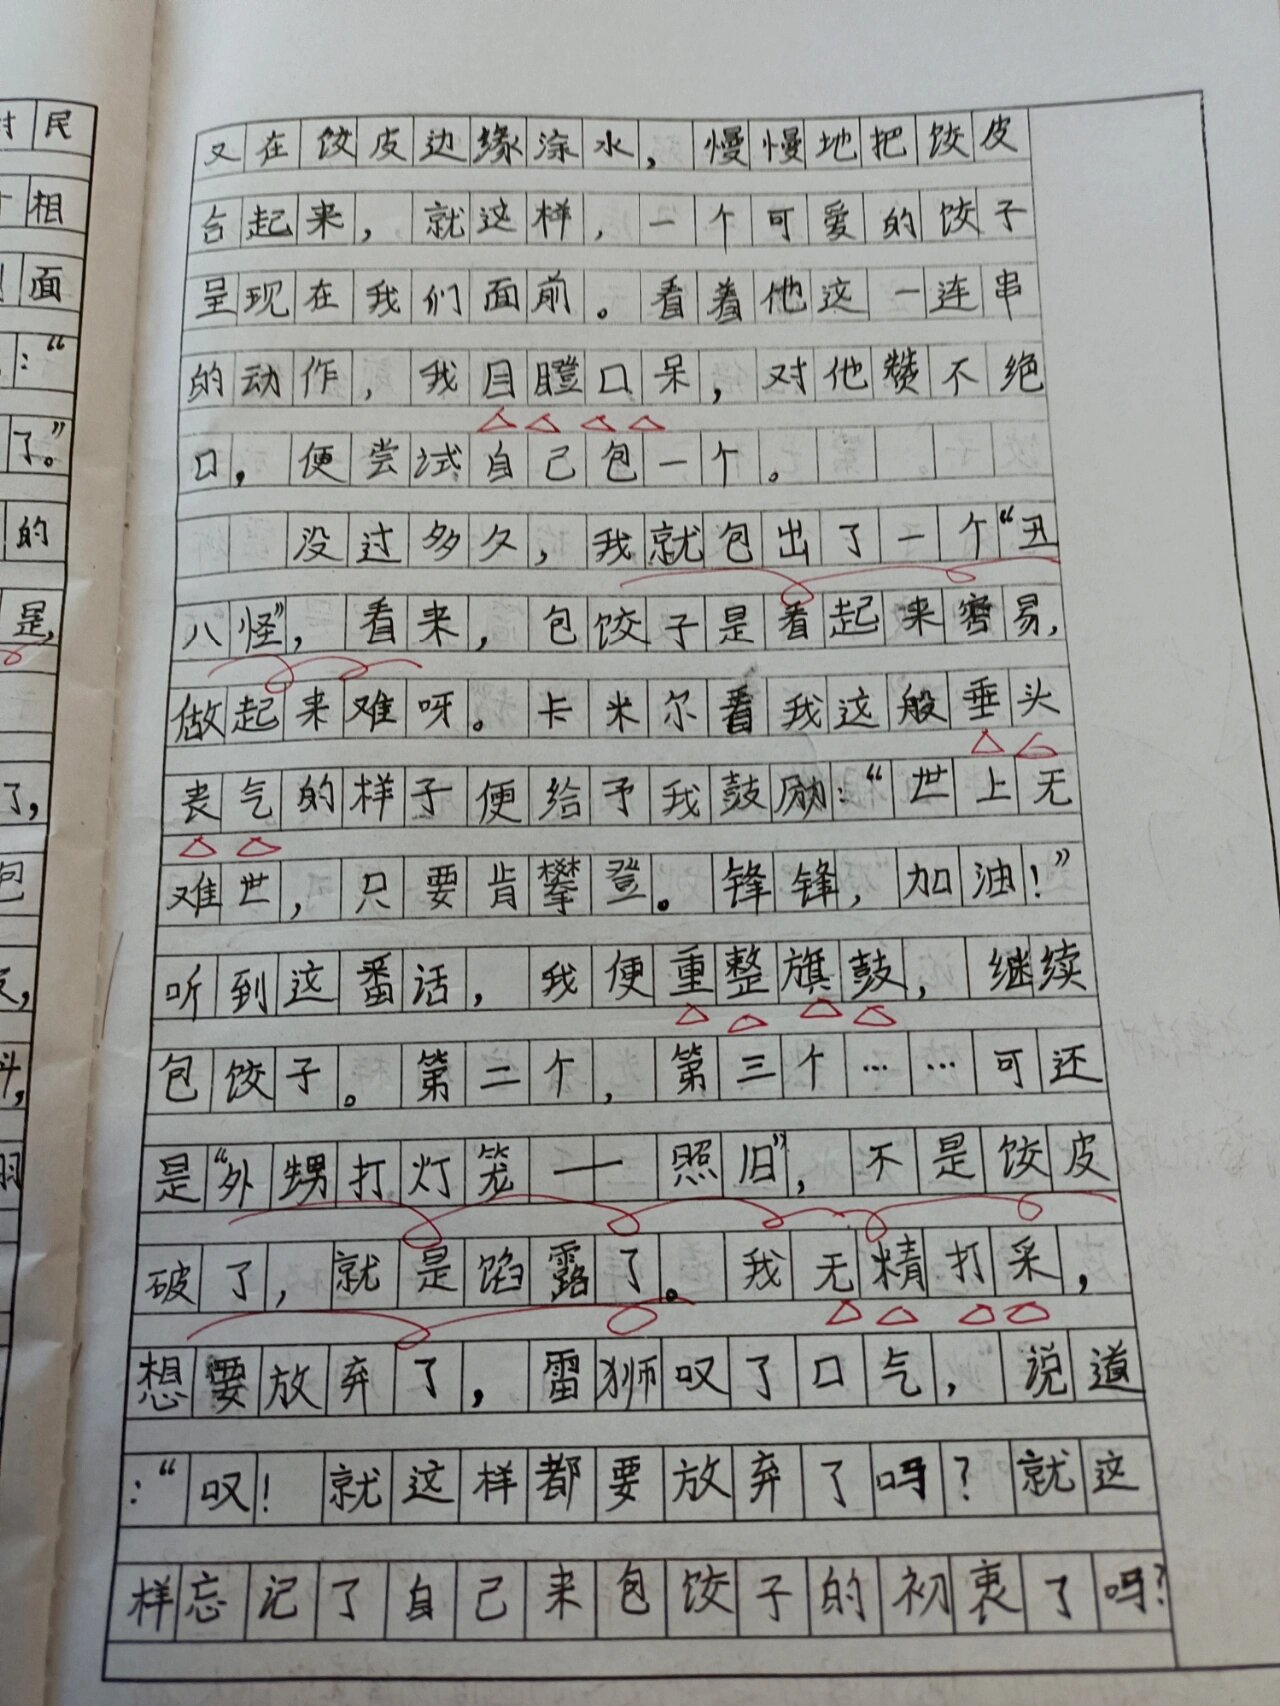 民
相
面
：“
了。”
的
是，
了，
包
又在饺皮边缘涂水，慢慢地把饺皮
合起来，就这样，一个可爱的饺子
呈现在我们面前。看着他这一连串
的动作，我目瞪口呆，对他赞不绝
口，便尝试自己包一个。
没过多久，我就包出了一个“丑
八怪”，看来，包饺子是看起来容易，
做起来难呀。卡米尔看我这般垂头
丧气的样子便给予我鼓励：“世上无
难世，只要肯攀登。锋锋，加油！”
听到这番话，我便重整旗鼓，继续
包饺子。第二个，第三个……可还
是“外甥打灯笼——照旧”，不是饺皮
破了，就是馅露了。我无精打采，
想要放弃了，雷狮叹了口气，说道
：“叹！就这样都要放弃了吗？就这
样忘记了自己来包饺子的初衷了吗？